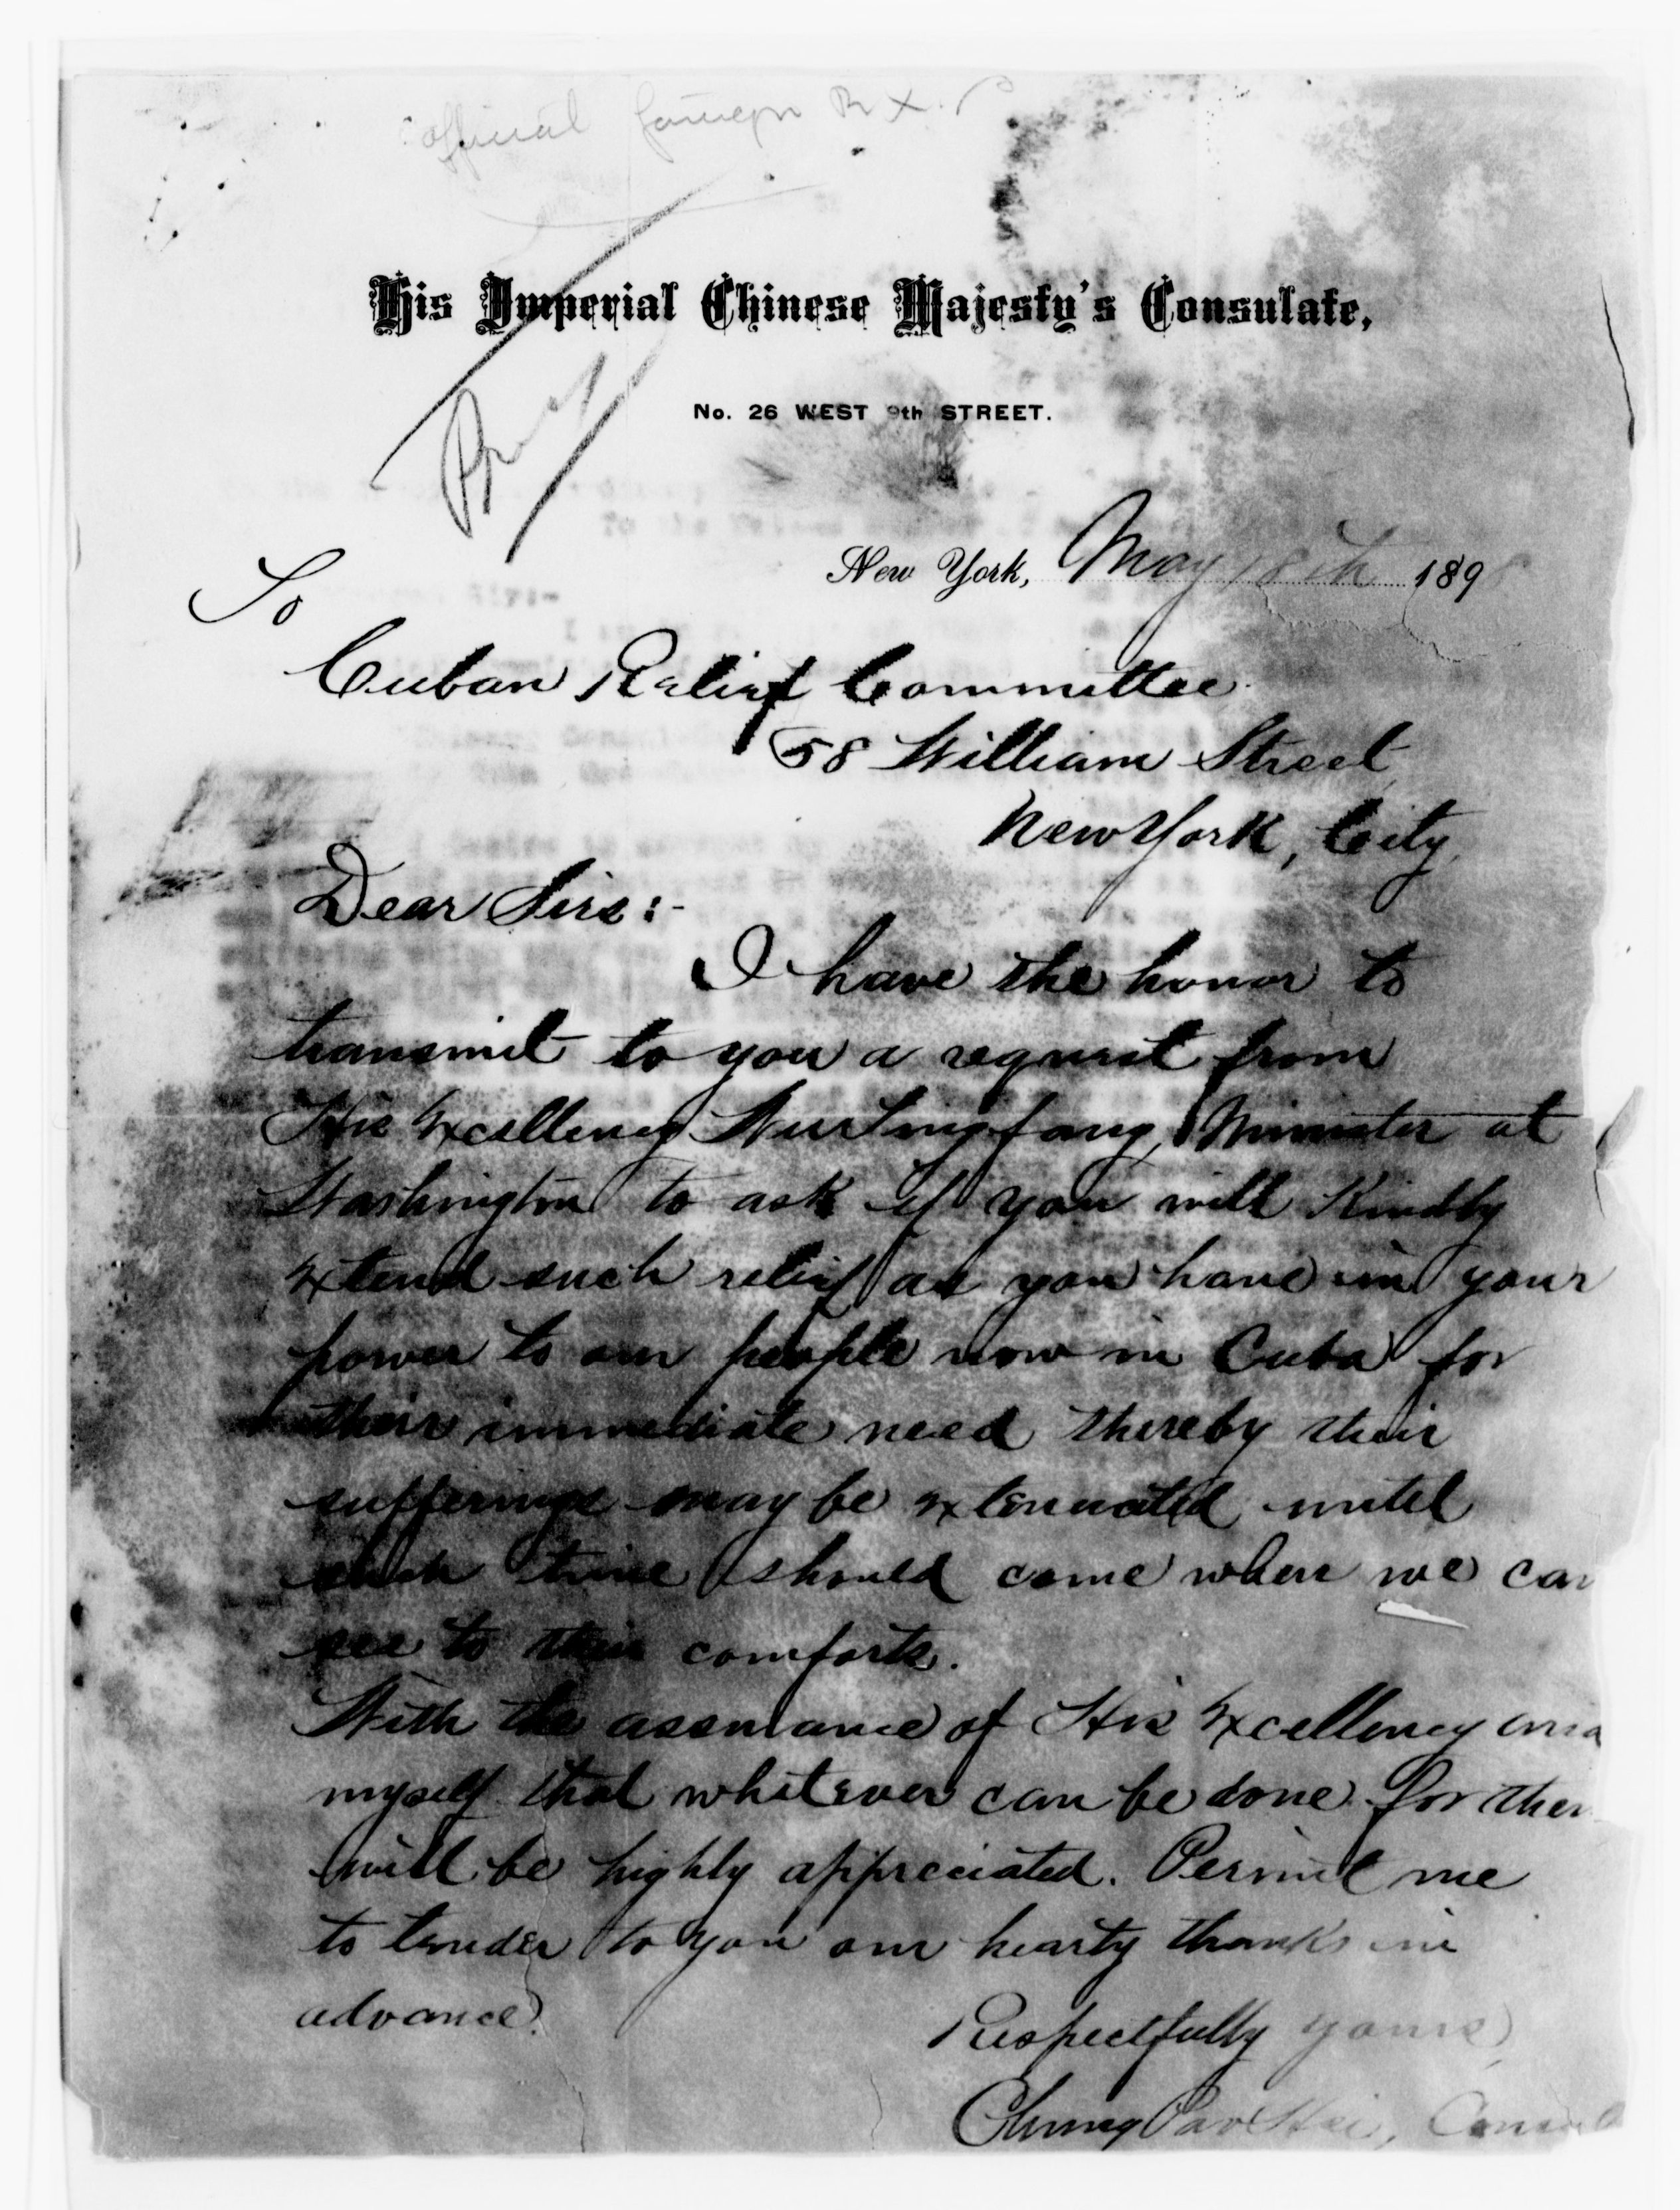 official foreign Rx.
His Imperial Chinese Majesty's Consulate,
No. 26 WEST 9th STREET.
New York, May 18th 1898
To
Cuban Relief Committee
58 William Street
New York, City
Dear Sirs:-
I have the honor to
transmit to you a request from
His Excellency Wu Tingfang, Minister at
Washington to ask if you will Kindly
extend such relief as you have in your
power to our people now in Cuba for
their immediate need thereby their
sufferings may be extenuated until
such time should come when we can
see to their comforts.
With the assurance of His Excellency and
myself that whatever can be done for them
will be highly appreciated. Permit me
to tender to you our hearty thanks in
advance.
Respectfully yours,
Chung Pao Hsi, Consul